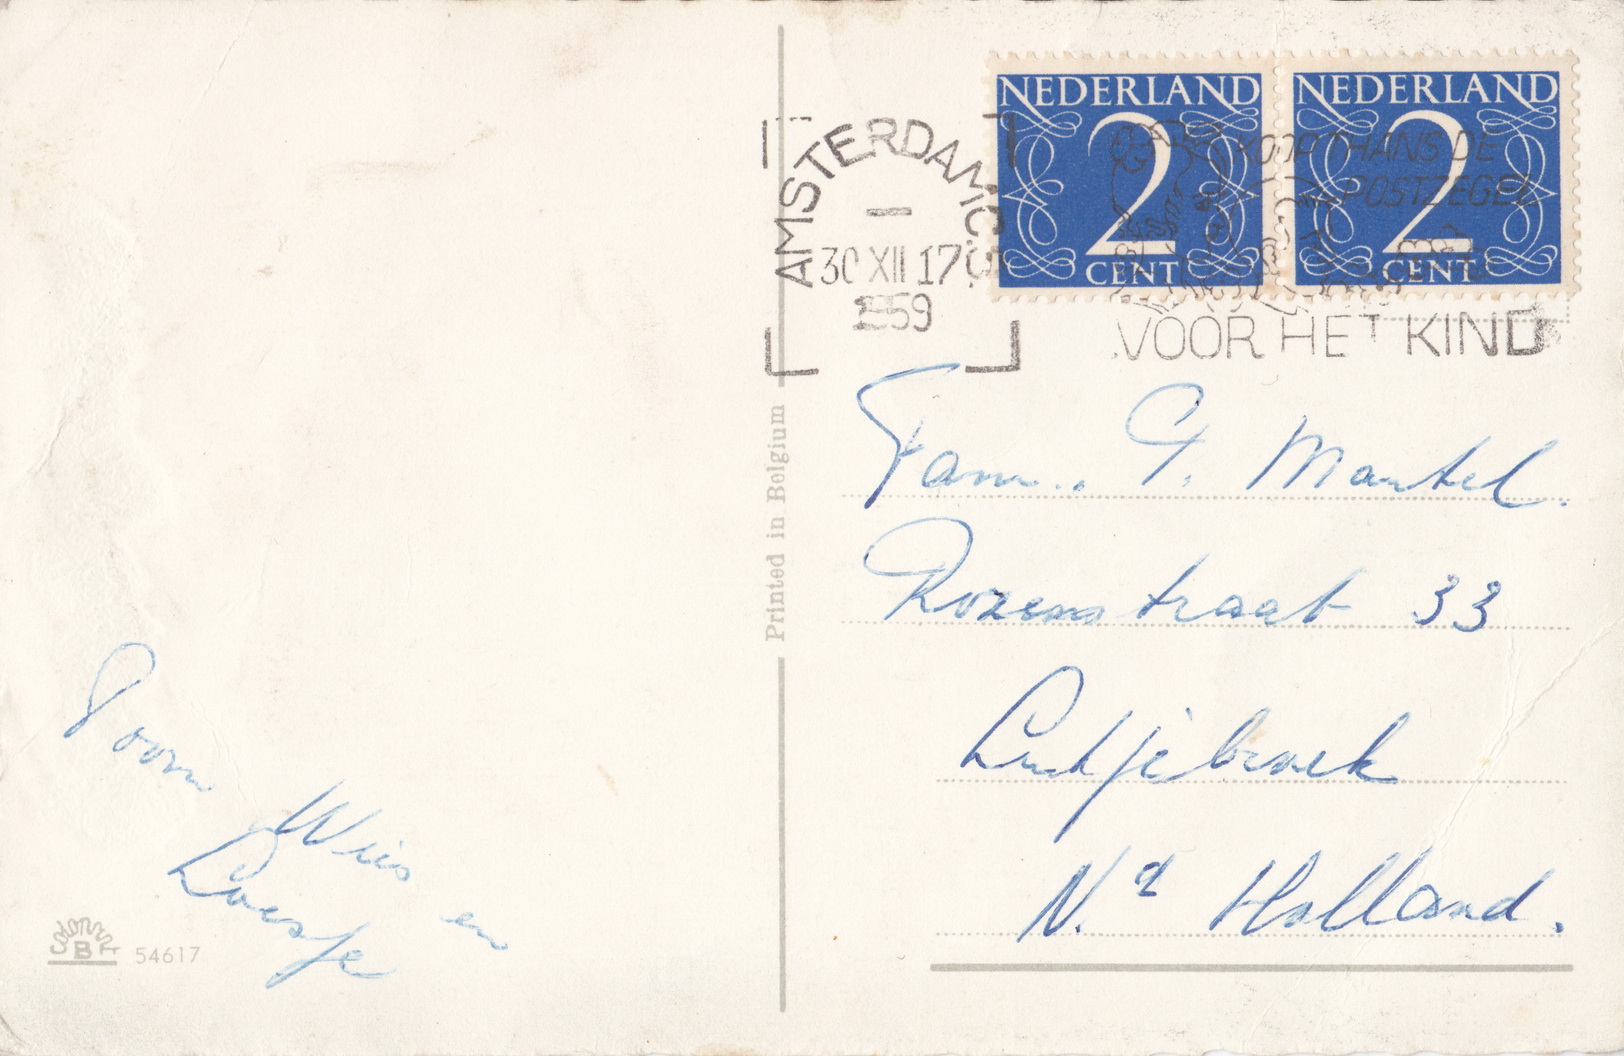 NEDERLAND
2
CENT
NEDERLAND
2
CENT
AMSTERDAM C.S.
30 XII 17
1959
KOOPT THANS DE
POSTZEGEL
VOOR HET KIND
Printed in Belgium
Fam. G. Mantel.
Rozenstraat 33
Lutjebroek
N.d Holland.
Toon
Wies en
Loesje
COLOR
B
54617